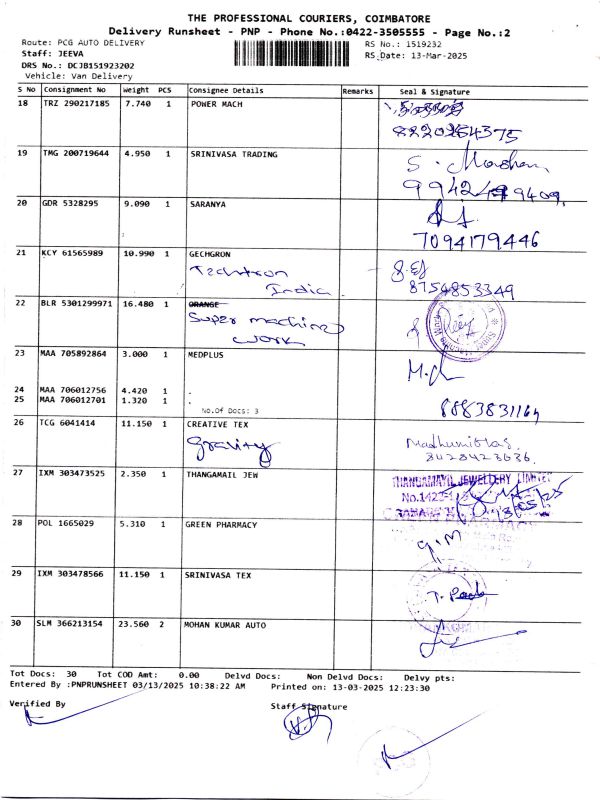 THE PROFESSIONAL COURIERS, COIMBATORE
Delivery Runsheet - PNP - Phone No.:0422-3505555 - Page No.:2
Route: PCG AUTO DELIVERY
RS No.: 1519232
Staff: JEEVA
RS Date: 13-Mar-2025
DRS No.: DCJB151923202
Vehicle: Van Delivery
S No Consignment No Weight PCS Consignee Details Remarks Seal & Signature
18 TRZ 290217185 7.740 1 POWER MACH
8220254375
19 TMG 200719644 4.950 1 SRINIVASA TRADING
S.
20 GDR 5328295 9.090 1 SARANYA
7094179446
21 KCY 61565989 10.990 1 GECHGRON
Techtron
India
8754853349
22 BLR 5301299971 16.480 1 ORANGE
Super machine
work
23 MAA 705892864 3.000 1 MEDPLUS
24 MAA 706012756 4.420 1 .
25 MAA 706012701 1.320 1 .
No.Of Docs: 3
26 TCG 6041414 11.150 1 CREATIVE TEX
gravity
27 IXM 303473525 2.350 1 THANGAMAIL JEW
THANGAMAYIL JEWELLERY LIMITED
28 POL 1665029 5.310 1 GREEN PHARMACY
29 IXM 303478566 11.150 1 SRINIVASA TEX
30 SLM 366213154 23.560 2 MOHAN KUMAR AUTO
Tot Docs: 30 Tot COD Amt: 0.00 Delvd Docs: Non Delvd Docs: Delvy pts:
Entered By :PNPRUNSHEET 03/13/2025 10:38:22 AM Printed on: 13-03-2025 12:23:30
Verified By
Staff Signature